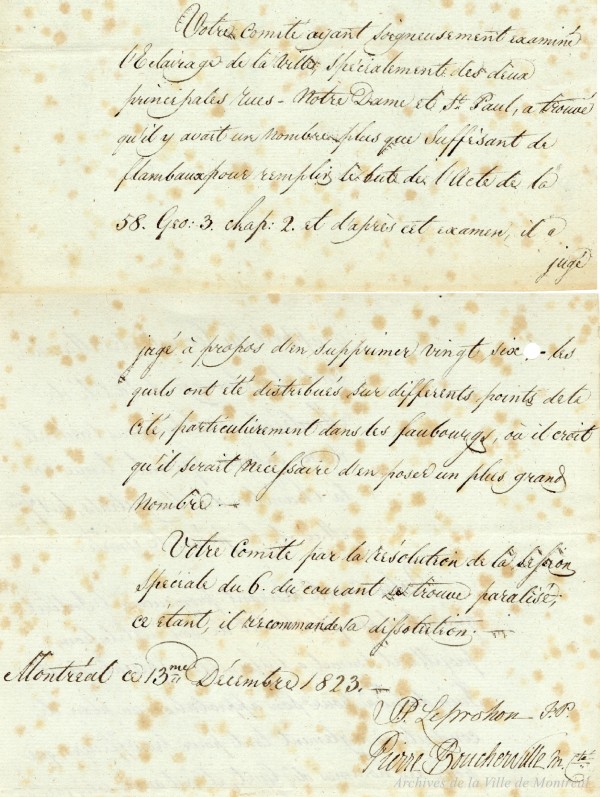 Votre Comité ayant soigneusement examiné
l'Eclairage de la Ville, spécialement des deux
principales rues - Notre Dame et St. Paul, a trouvé
qu'il y avait un nombre plus que suffésant de
flambaux pour remplir le bute de l'Acte de la
58. Geo: 3. chap: 2. et d'après cet examen, il a
jugé
jugé à propos d'en supprimer vingt six - les
quels ont été distribués sur differents points de la
Cité, particulièrement dans les faubourgs, où il croit
qu'il serait nécéssaire d'en poser un plus grand
nombre. -
Votre Comité par la résolution de la Session
Spéciale du 6. du courant se trouve paralisé;
ce étant, il recommande sa dissolution. -
Montréal ce 13me. Décembre 1823. -
P. Leprohon J.P.
Pierre Boucherville
Archives de la Ville de Montréal